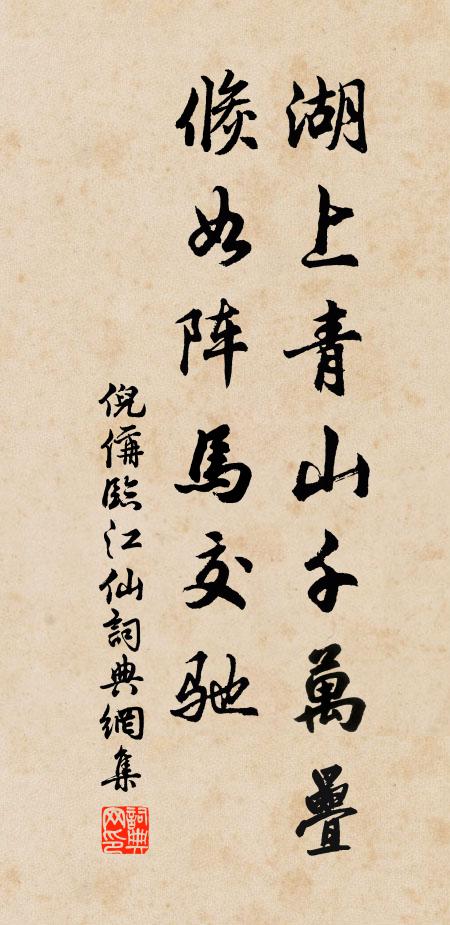 湖上青山千萬疊
倏如阵馬交馳
倪偁臨江仙詞典網集
詞典网印